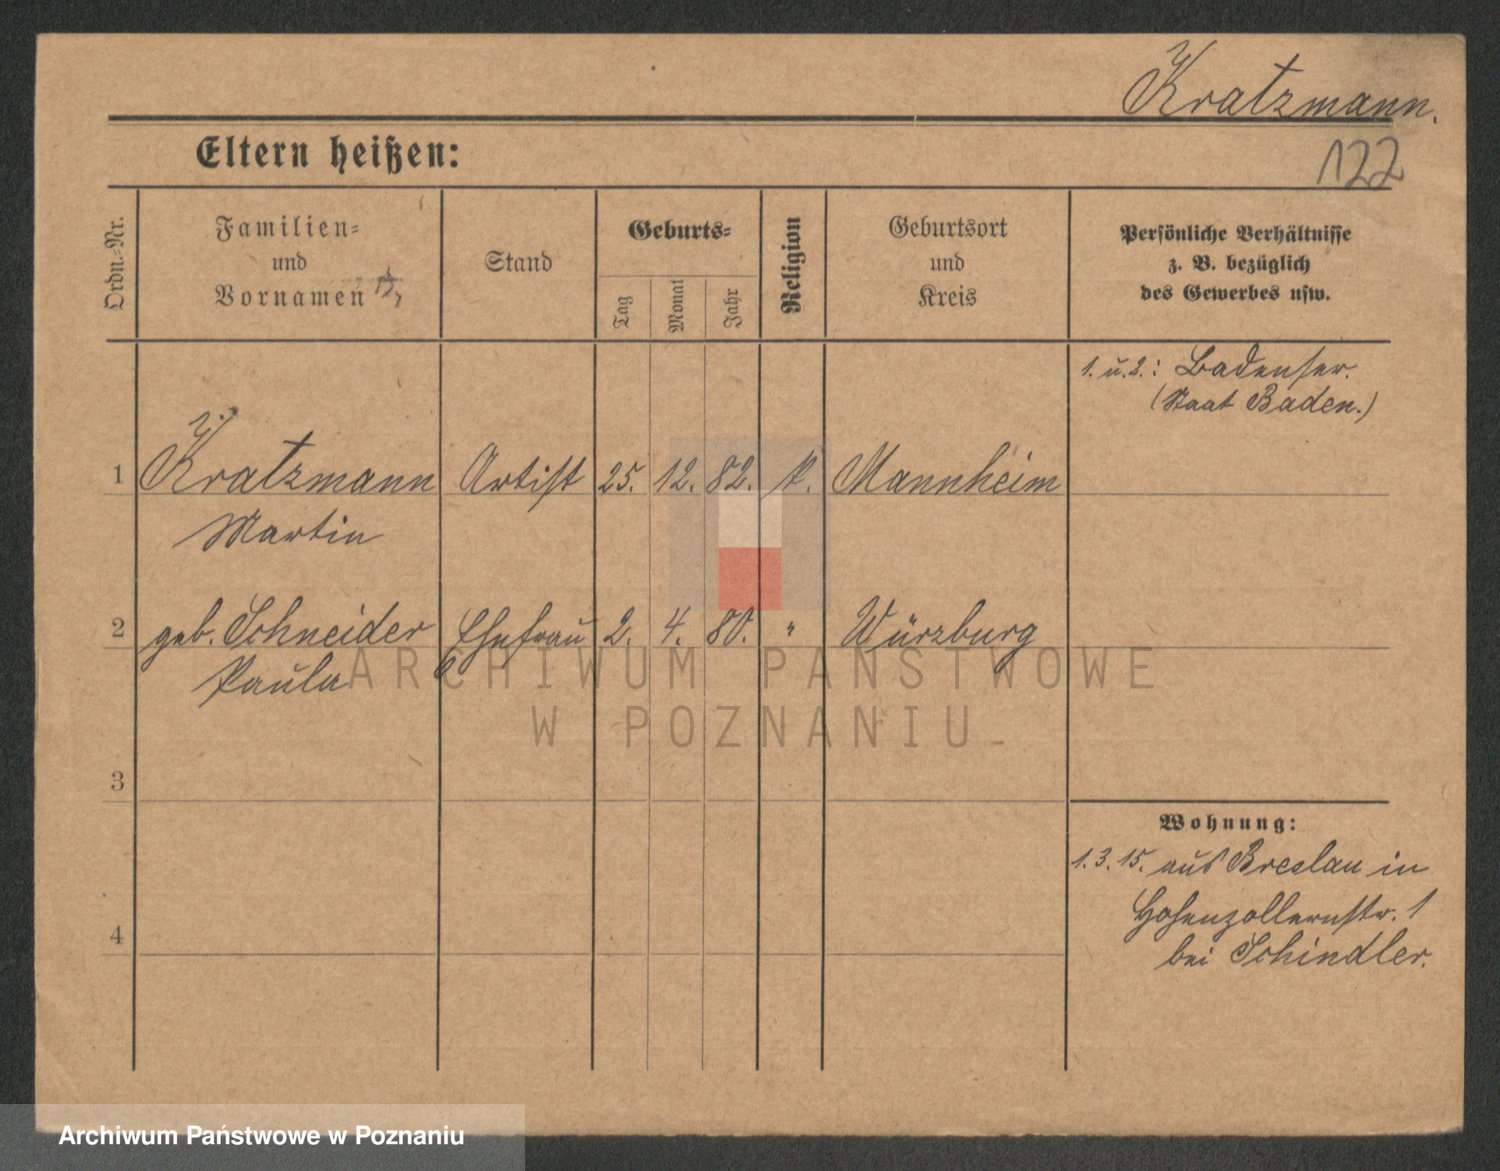 Kratzmann.
122
Eltern heißen:
Ordn.=Nr.
Familien=
und
Vornamen
Stand
Geburts=
Tag
Monat
Jahr
Religion
Geburtsort
und
Kreis
Persönliche Verhältnisse
z. B. bezüglich
des Gewerbes usw.
1. u. 2.: Badenser.
(Staat Baden.)
1 Kratzmann Artist 25. 12. 82. k. Mannheim
Martin
2 geb. Schneider Ehefrau 2. 4. 80. " Würzburg
Paula
ARCHIWUM PAŃSTWOWE
W POZNANIU
3
Wohnung:
1.3.15. aus Breslau in
Hohenzollernstr. 1
4
bei Schindler.
Archiwum Państwowe w Poznaniu